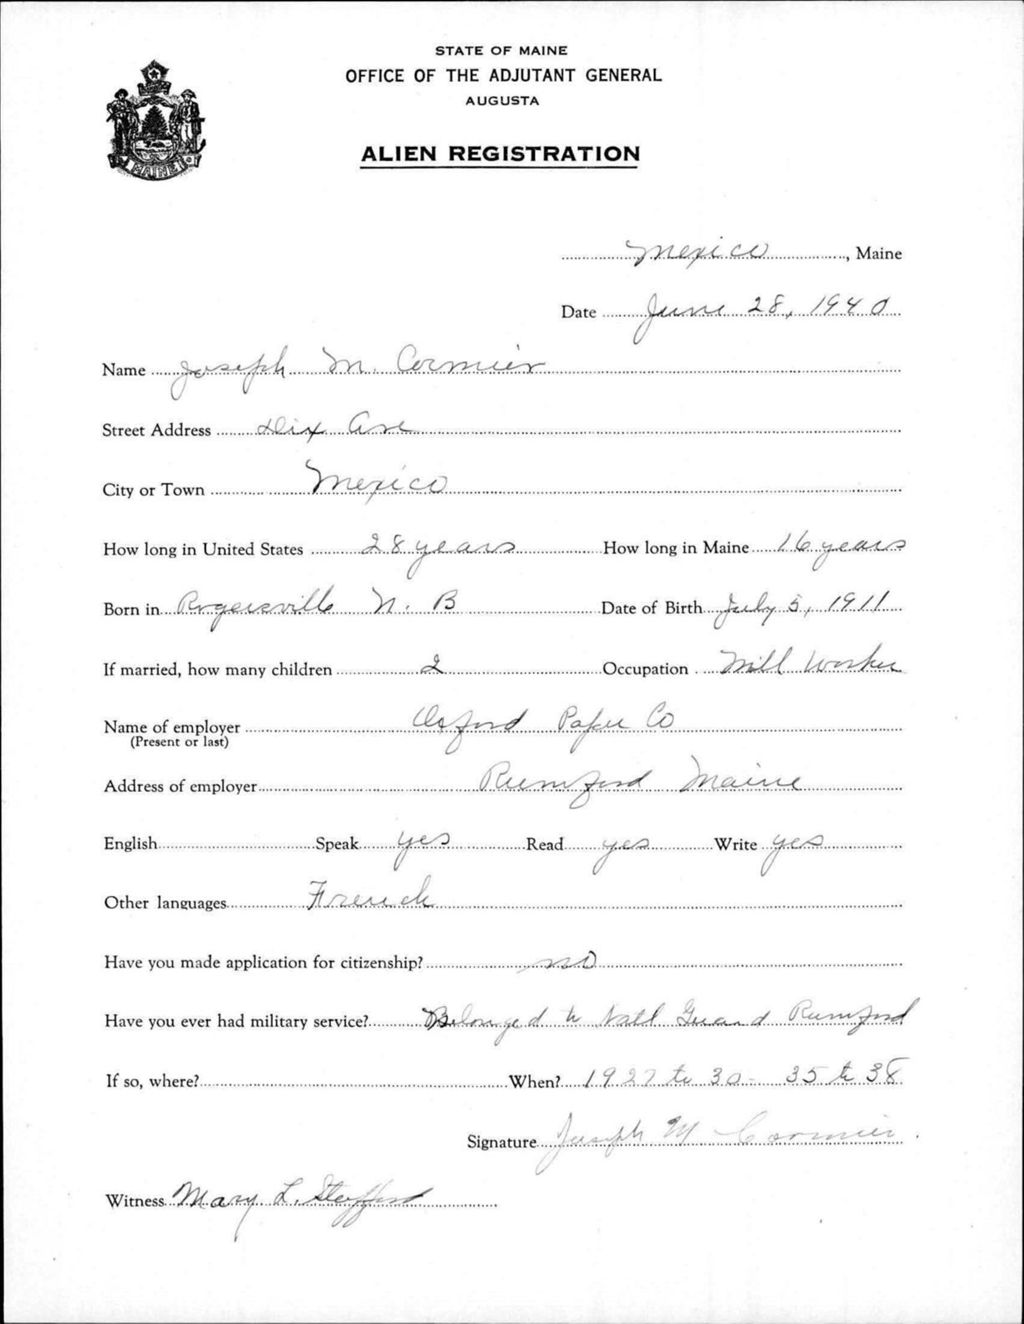 STATE OF MAINE
OFFICE OF THE ADJUTANT GENERAL
AUGUSTA
ALIEN REGISTRATION
MAINE
Mexico, Maine
Date June 28, 1940
Name Joseph M. Cormier
Street Address Dix Ave
City or Town Mexico
How long in United States 28 years How long in Maine 16 years
Born in Rogersville N. B Date of Birth July 5, 1911
If married, how many children 2 Occupation Mill Worker
Name of employer Oxford Paper Co
(Present or last)
Address of employer Rumford Maine
English Speak yes Read yes Write yes
Other languages French
Have you made application for citizenship? no
Have you ever had military service? Belonged to Natl Guard Rumford
If so, where? When? 1927 to 30 - 35 to 38
Signature Joseph M Cormier
Witness Mary L. Stafford